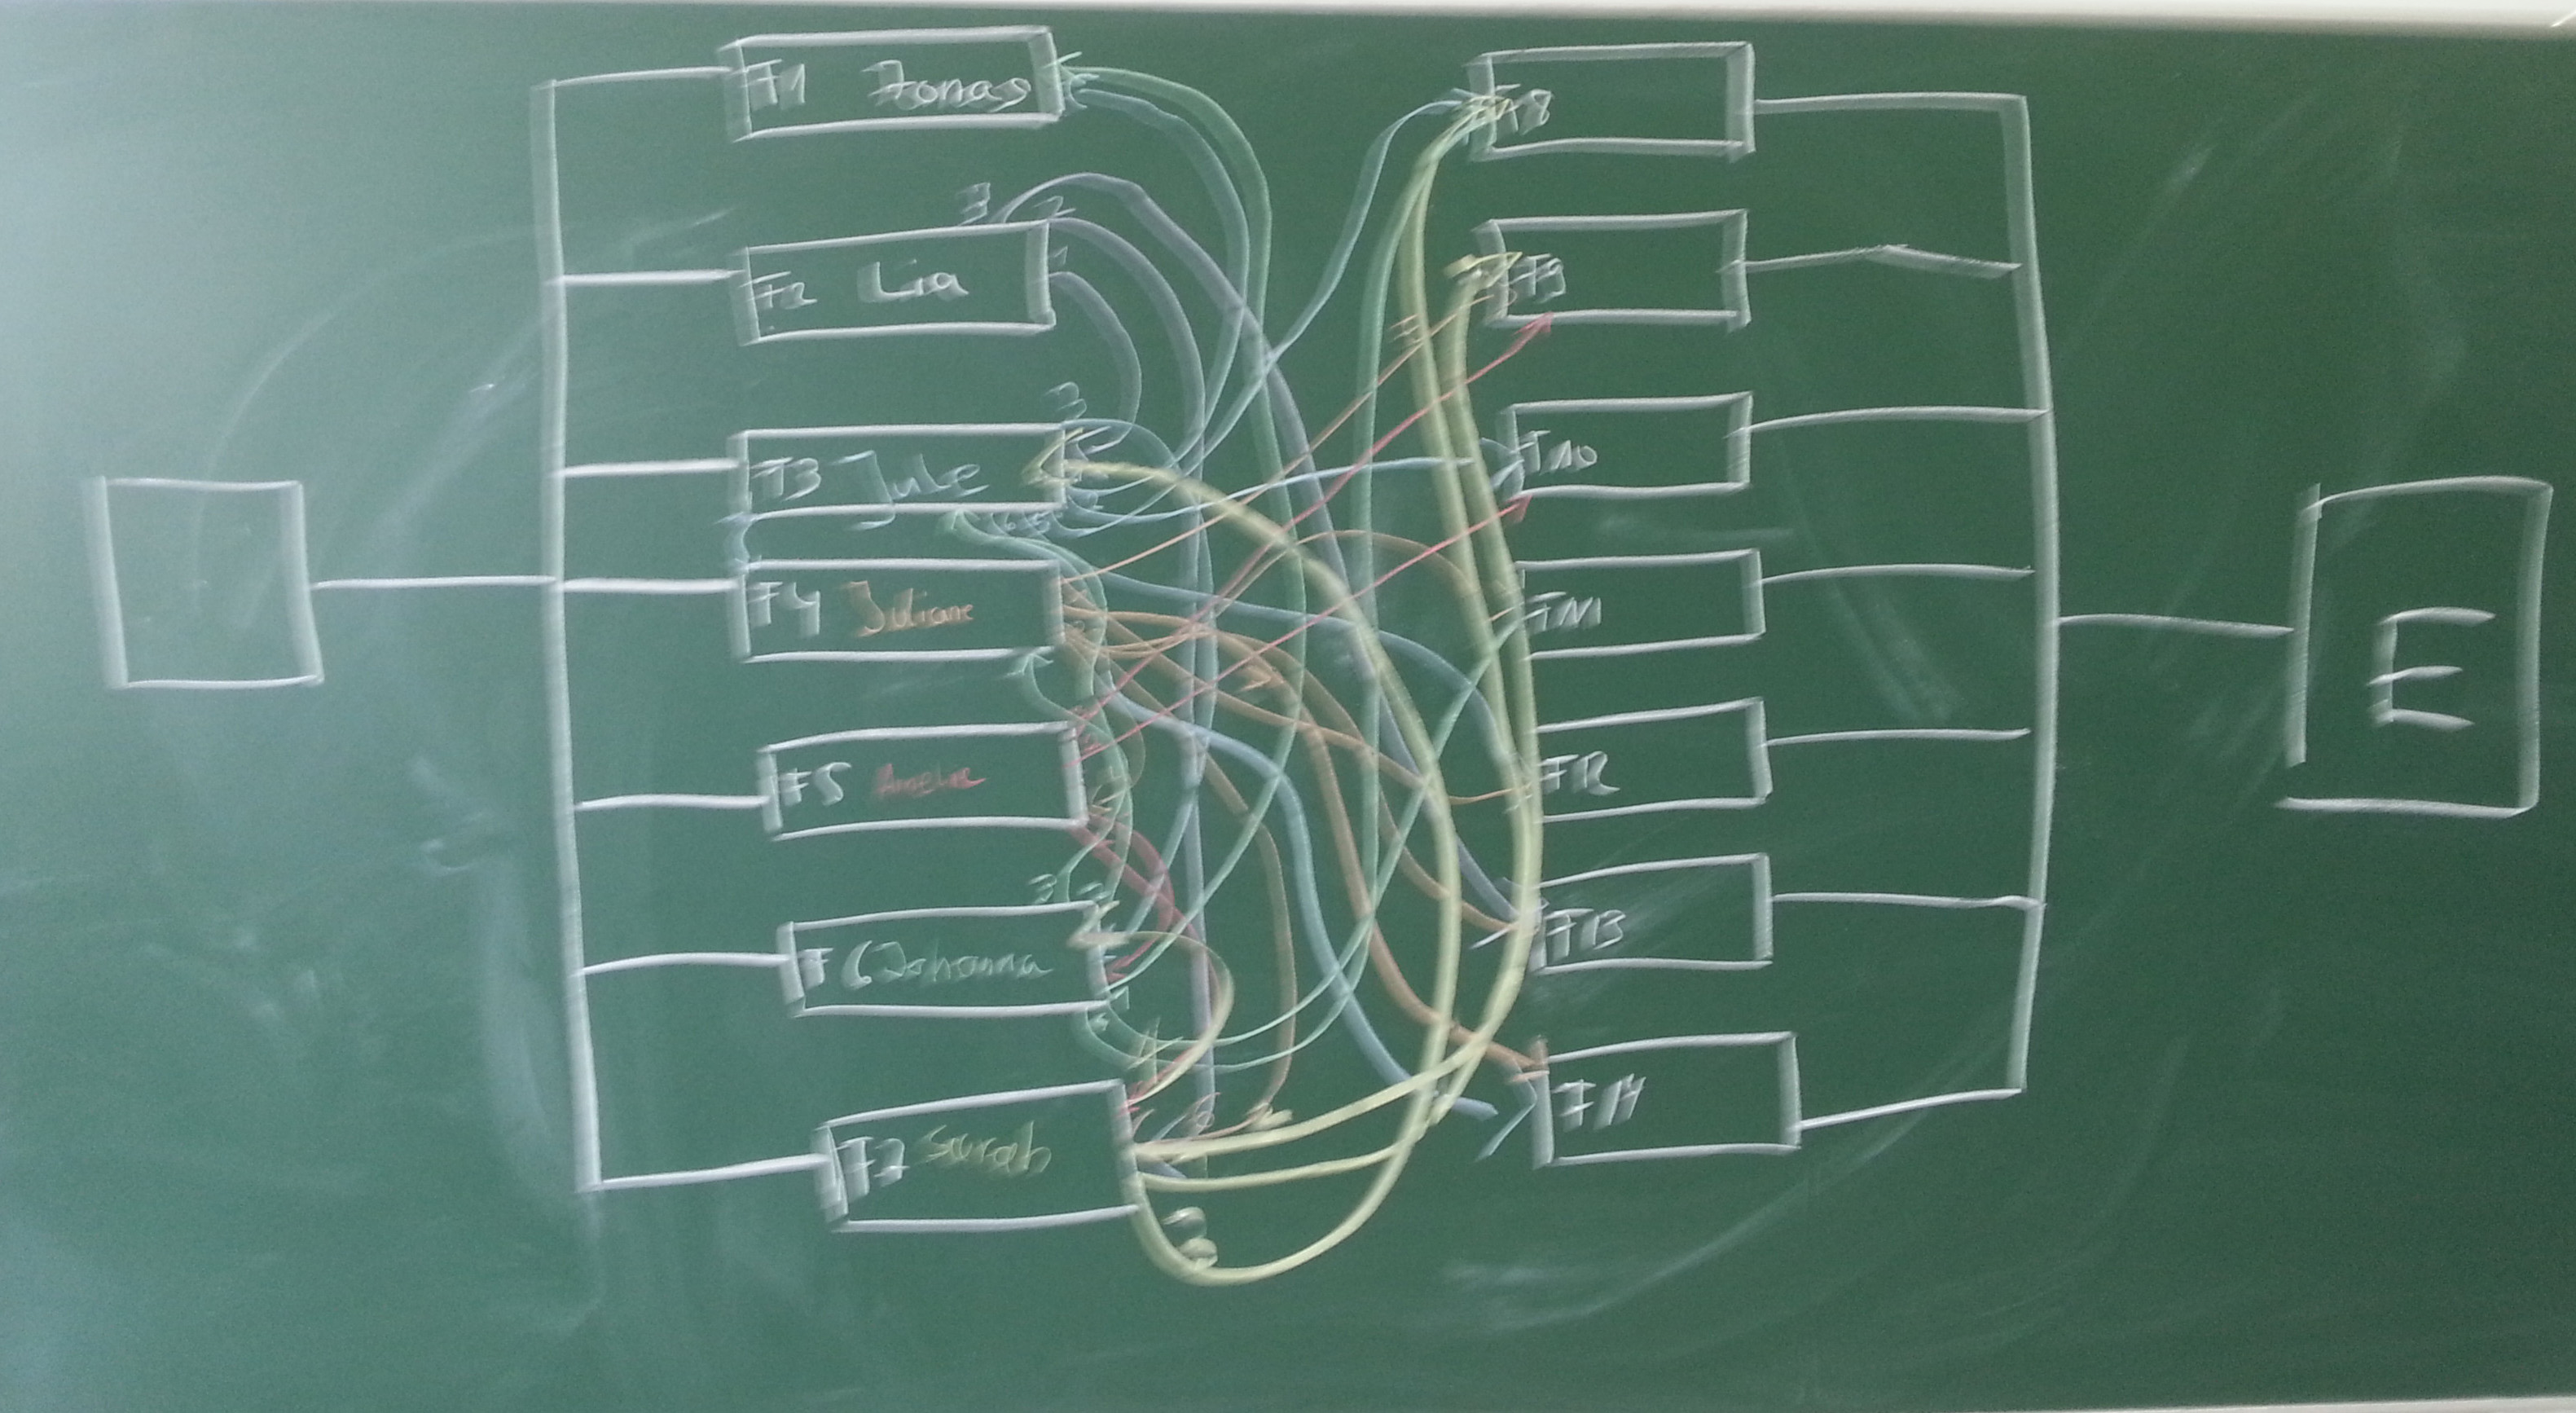 F1 Jonas
F2 Lia
3
2
1
3
F3 Jule
F4 Juliane
F5 Amelie
3
F6 Johanna
F7 Sarah
F8
F9
F10
F11
F12
F13
F14
E